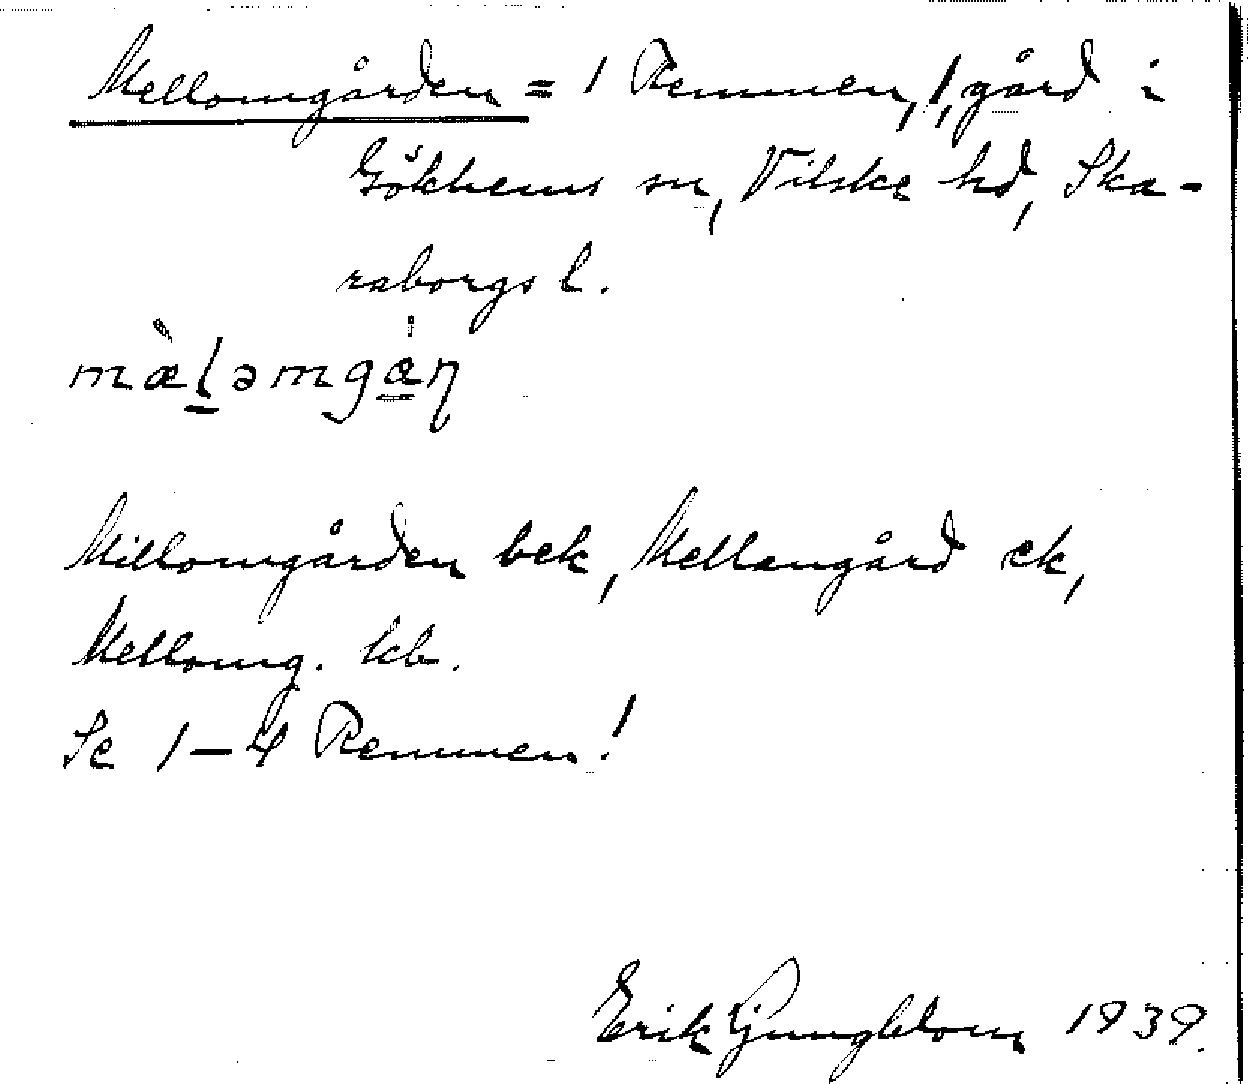 Mellomgården = 1 Remmen, 1, gård i
Gökhems sn, Vilske hd, Ska-
raborgs l.
mæ̀l̠əmgå̠ṇ
Millomgården bek, Mellangård ek,
Mellomg. kb.
Se 1–4 Remmen!
Erik Ljungblom 1939.